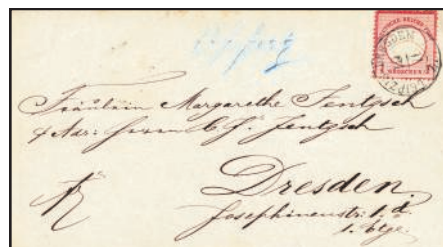 DRESDEN
GROSCHEN
Fräulein Margarethe Jentzsch
Adr: Herrn C. F. Jentzsch
Dresden.
Josephinenstr: 1. d.
1. Etge.